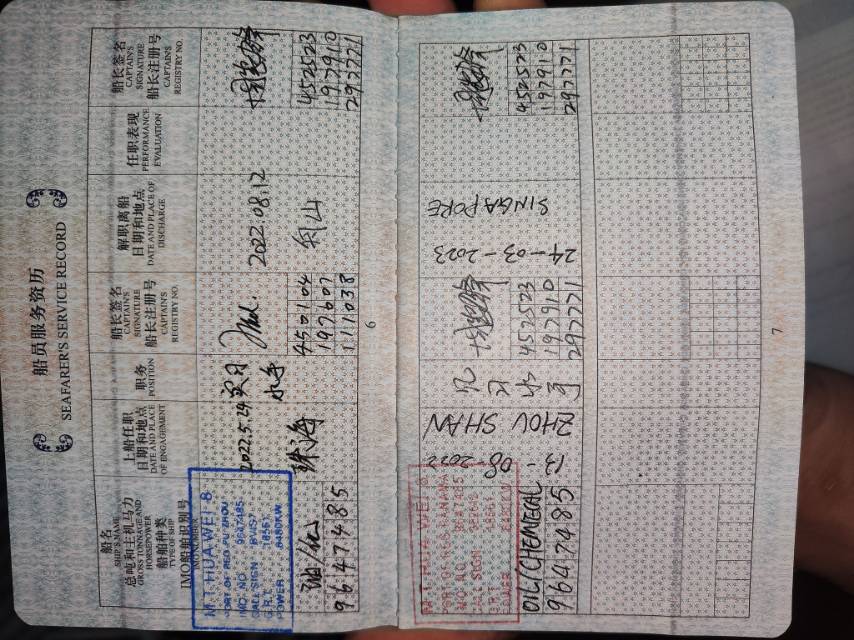 船员服务资历
SEAFARER'S SERVICE RECORD
船名
SHIP'S NAME
总吨和主机马力
GROSS TONNAGE AND
HORSEPOWER
船舶种类
TYPE OF SHIP
IMO船舶识别号
IMO NUMBER
上船任职
日期和地点
DATE AND PLACE
OF ENGAGEMENT
职务
POSITION
船长签名
CAPTAIN'S
SIGNATURE
船长注册号
CAPTAIN'S
REGISTRY NO.
解职离船
日期和地点
DATE AND PLACE OF
DISCHARGE
任职表现
PERFORMANCE
EVALUATION
船长签名
CAPTAIN'S
SIGNATURE
船长注册号
CAPTAIN'S
REGISTRY NO.
M.T. HUA WEI 8
PORT OF REG FUZHOU
IMO. NO 9647485
CALL SIGN
G.R.T
POWER 6480KW
油/化
9647485
2022.5.24
珠海
实习
水手
450104
197607
111038
2022.08.12
舟山
452523
197910
297771
6
M.T. HUA WEI 8
PORT OF REG PANAMA
IMO NO 9647485
CALL SIGN
G.R.T
POWER 6480KW
OIL/CHEMICAL
9647485
13 - 08 - 2022
ZHOU SHAN
见习水手
452523
197910
297771
24-03-2023
SINGAPORE
452523
197910
297771
7